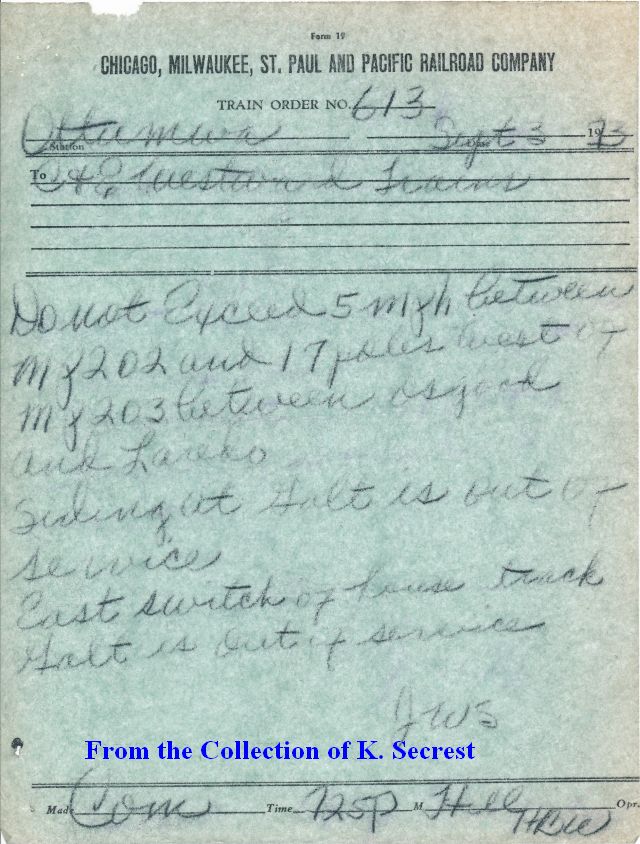 Form 19
CHICAGO, MILWAUKEE, ST. PAUL AND PACIFIC RAILROAD COMPANY
TRAIN ORDER NO. 613
Ottumwa Sept 3 1973
Station
To C&E Westward Trains
Do not Exceed 5 mph between
MP 202 and 17 poles west of
MP 203 between Osgood
and Laredo
Siding at Galt is out of
service
East switch of house track
Galt is out of service
JWS
From the Collection of K. Secrest
Made Com Time 725P M Opr.